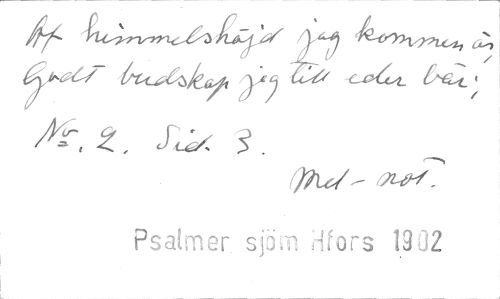 Af himmelshöjd jag kommen är,
Godt budskap jag till eder bär;
No. 2. Sid. 3.
Mel-not.
Psalmer sjöm Hfors 1902